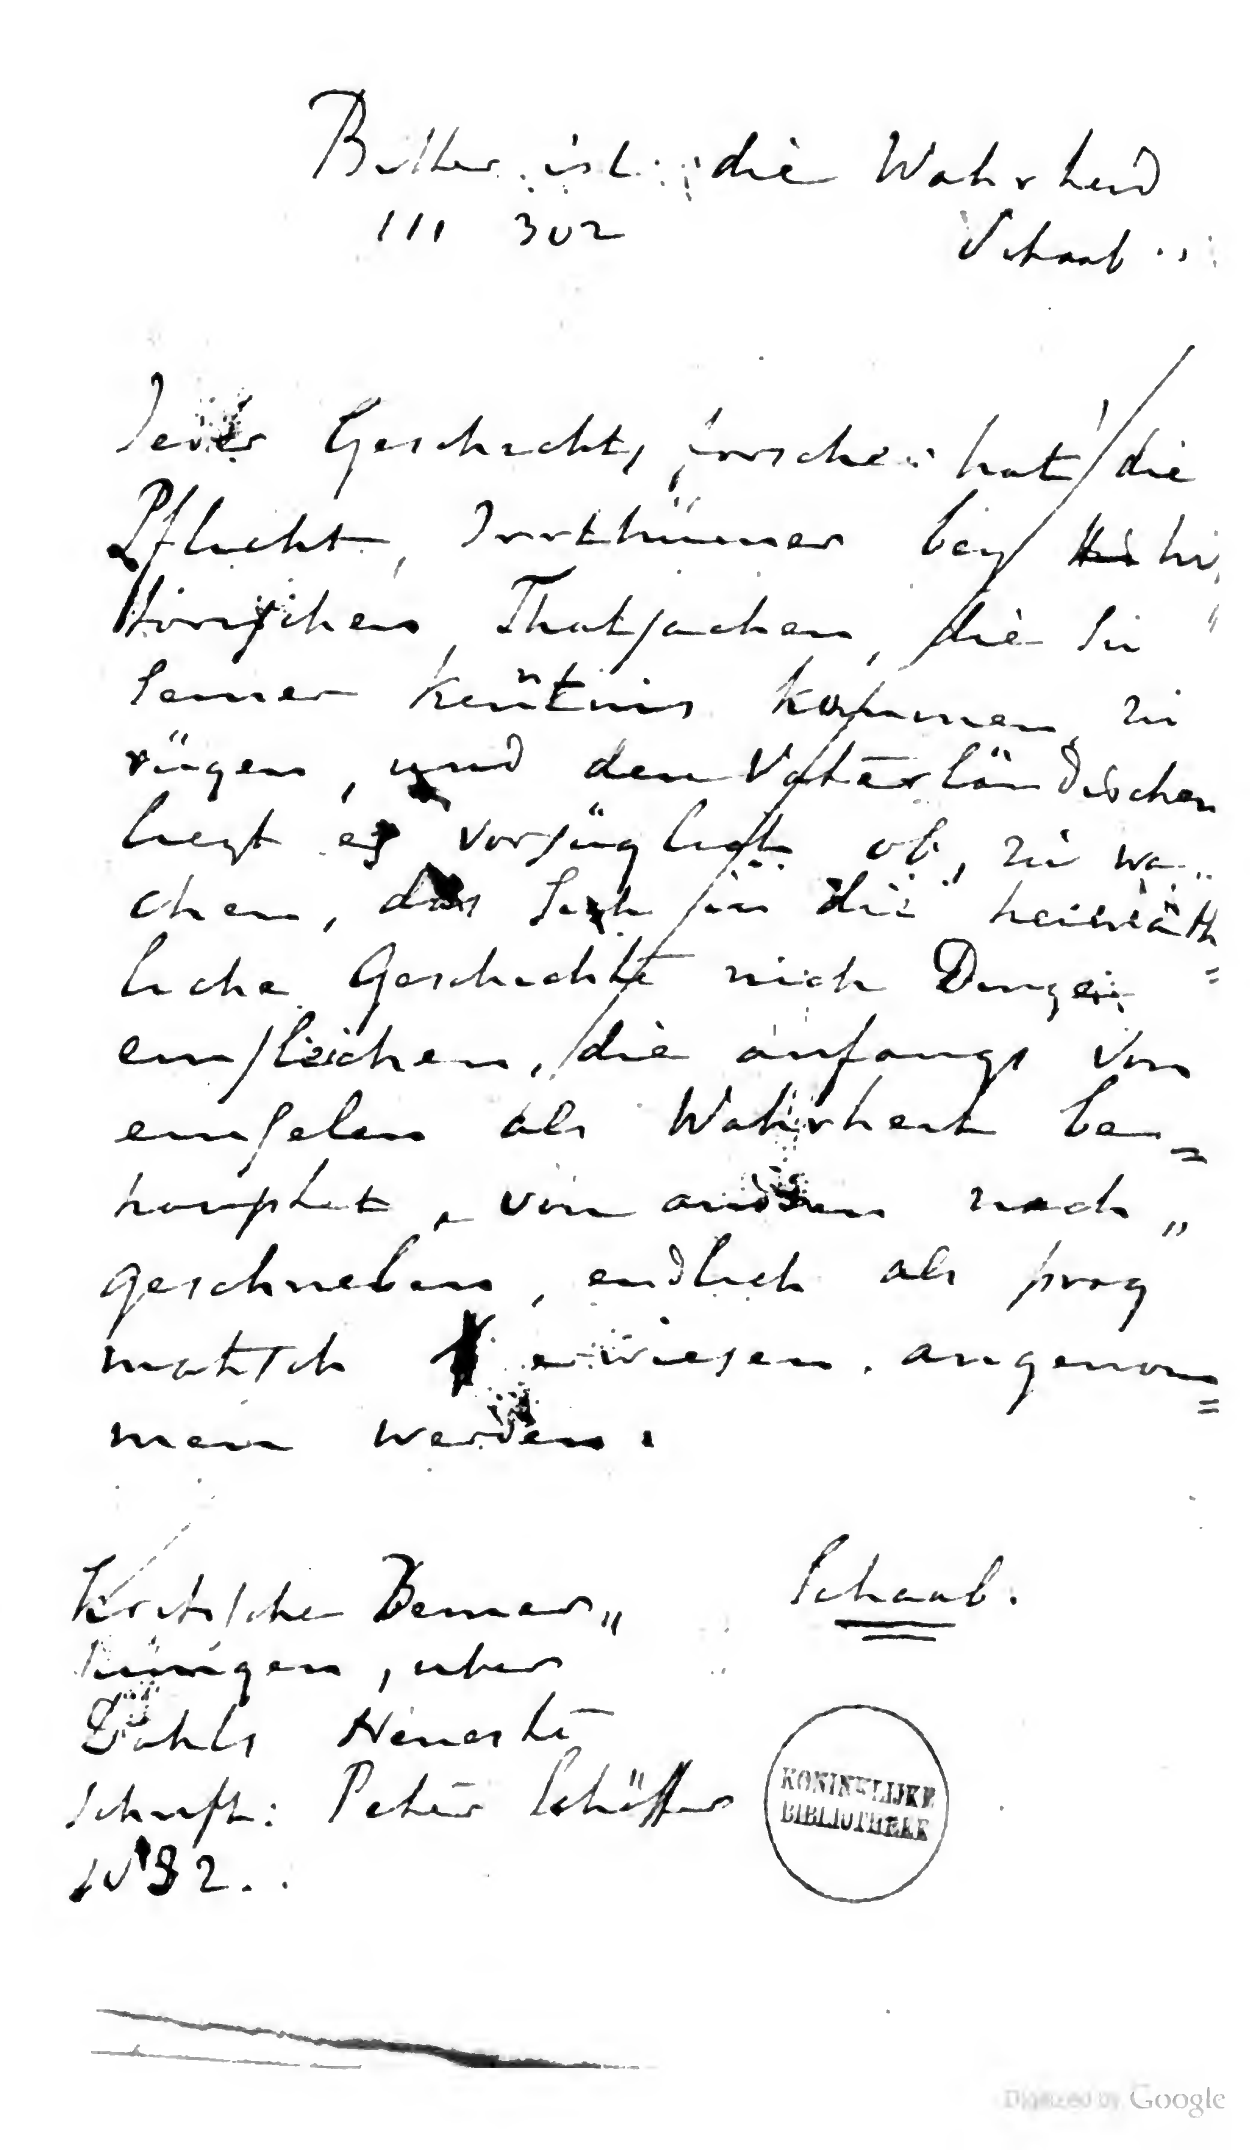 Bitter ist die Wahrheid
III 302 Schaab
Jeder Geschichtsforscher hat die
Pflicht, Irrthümer bey his
torischen Thatsachen, die Zu
Seiner Kentnis kommen, zu
rügen, und dem Vaterländischen
liegt es vorzüglich ob, zu wa„
chen, das Sich in die heimath=
liche Geschichte nich Dinge
einsleichen, die anfangs von
einzelen als Wahrheit be=
haupHet, von andern nach„
geschrieben, endlich als prag
matisch erwiesen, angenom=
men werden.
Kritische Bemer„ Schaab.
kungen, uber
Dahls Neueste
schrift: Peter Schöffer
1832.
KONINKLIJKE
BIBLIOTHEEK
Digitized by Google